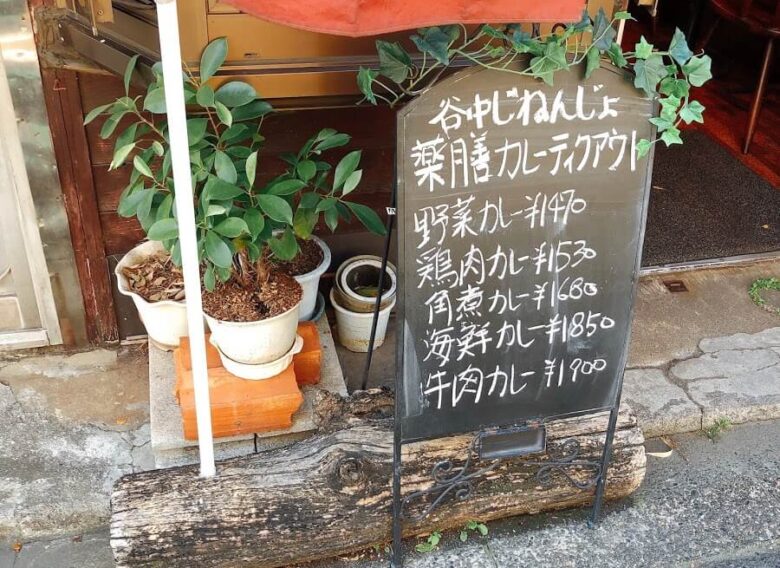 谷中じねんじょ
薬膳カレーティクアウト
野菜カレー¥1470
鶏肉カレー¥1530
角煮カレー¥1680
海鮮カレー¥1850
牛肉カレー¥1900